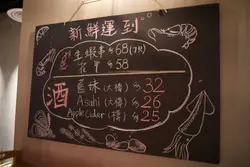 新鮮運到
生蝦春 68(7只)
花甲 58
酒
藍妹 (大樽) 32
Asahi (大樽) 26
Apple Cider (樽) 25